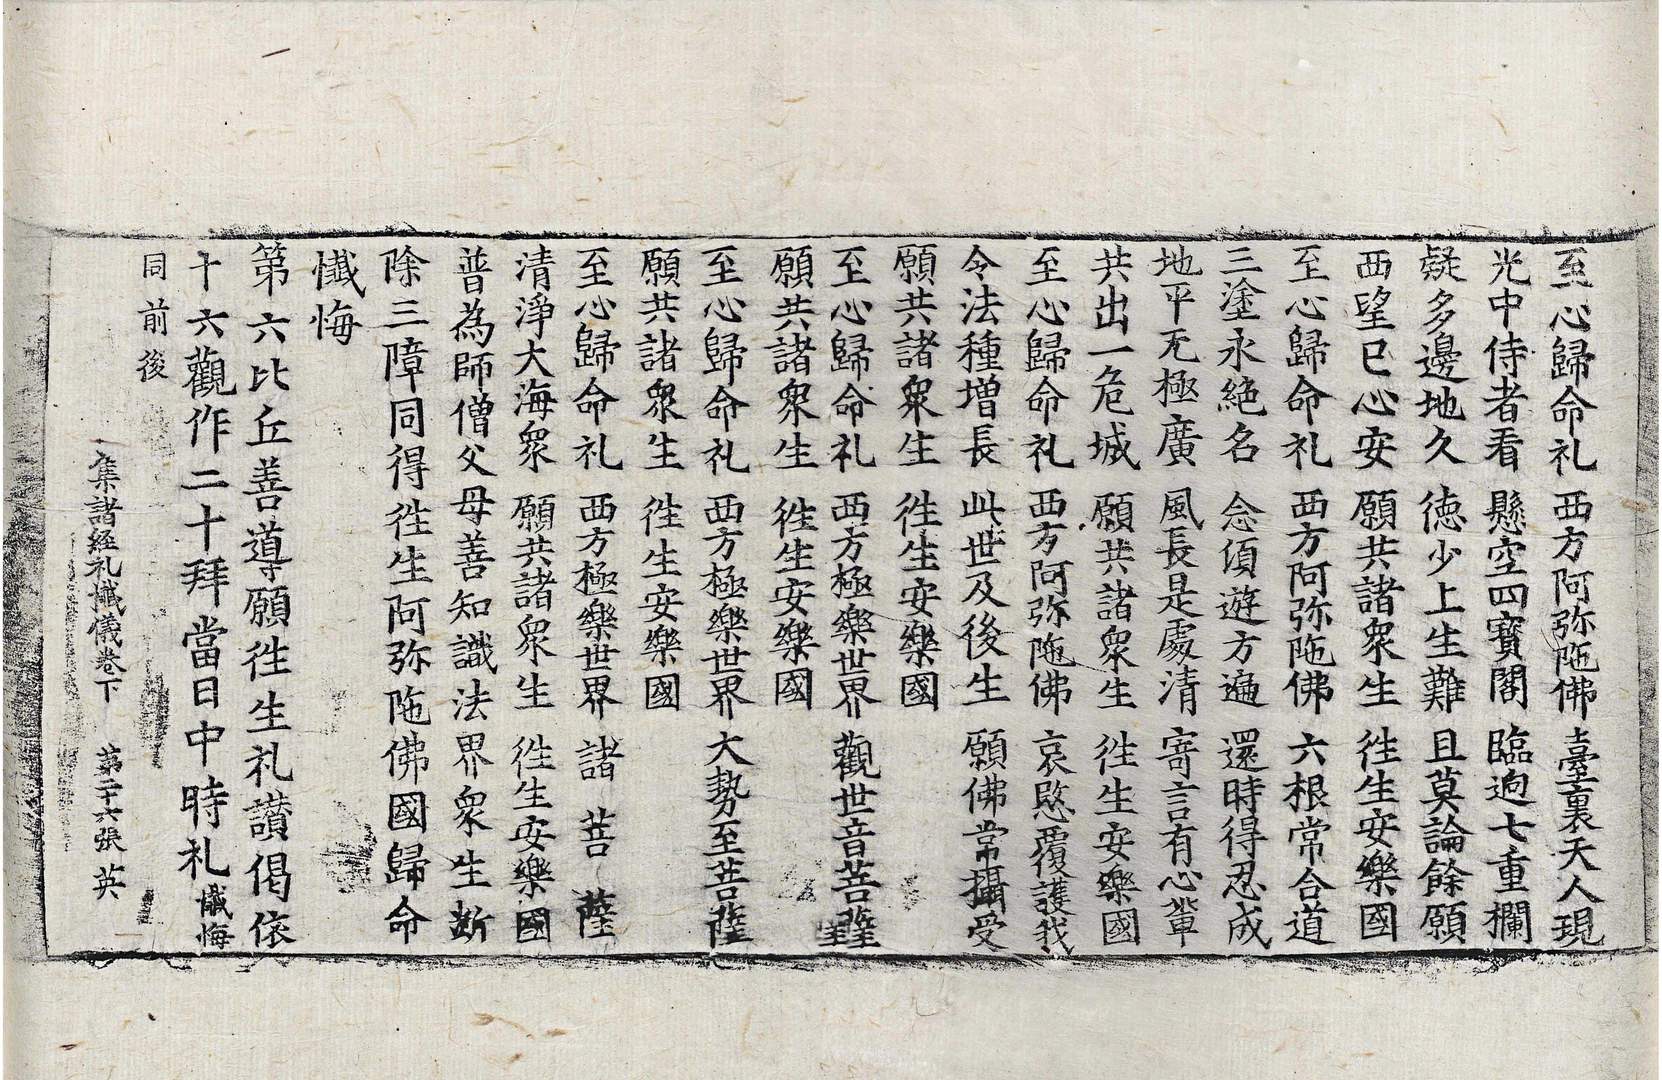 至心歸命礼 西方阿弥陁佛 臺裏天人現
光中侍者看 懸空四寶閣 臨逈七重欄
疑多邊地久 德少上生難 且莫論餘願
西望已心安 願共諸衆生 徃生安樂國
至心歸命礼 西方阿弥陁佛 六根常合道
三塗永絶名 念須遊方遍 還時得忍成
地平无極廣 風長是處清 寄言有心輩
共出一危城 願共諸衆生 徃生安樂國
至心歸命礼 西方阿弥陁佛 哀愍覆護我
令法種增長 此世及後生 願佛常攝受
願共諸衆生 徃生安樂國
至心歸命礼 西方極樂世界 觀世音菩薩
願共諸衆生 徃生安樂國
至心歸命礼 西方極樂世界 大勢至菩薩
願共諸衆生 徃生安樂國
至心歸命礼 西方極樂世界 諸菩薩
清淨大海衆 願共諸衆生 徃生安樂國
普為師僧父母善知識法界衆生斷
除三障同得徃生阿弥陁佛國歸命
懺悔
第六比丘善導願徃生礼讃偈依
十六觀作二十拜當日中時礼 懺悔
同前後
集諸經礼懺儀卷下 第二十六張 英